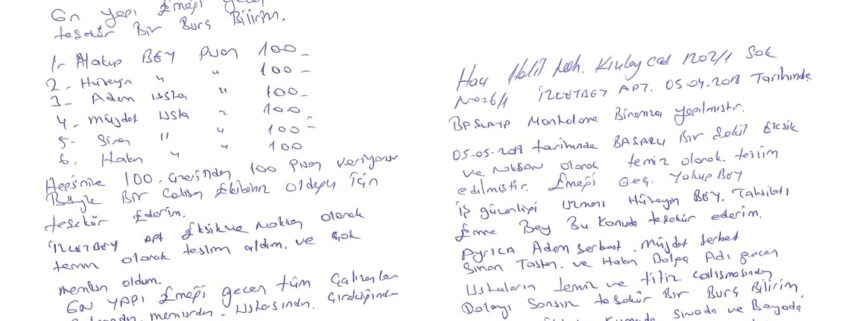 GN YAPI Emeği geçen
teşekür Bir Burç Bilirim.
1- Yakup BEY puan 100
2- Hüseyin " " 100
3- Adem usta " 100
4- Müjdat usta " 100
5- Sinan " " 100
6- Hakan " " 100
Hepsine 100 üzerinden 100 puan veriyorum
Böyle Bir Çalışma Ekibiniz olduğu için
teşekür Ederim.
İZZETBEY APT Eksik ve Noksan olarak
temiz olarak teslim aldım. ve çok
memnun oldum.
GN YAPI Emeği geçen tüm Çalışanlar
memurdan. Ustasından.
Hacı Halil Mah. Kızılay cad 1202/1 Sok
No26/1 İZZETBEY APT. 05.04.2018 Tarihinde
BAŞLAYIP Mantolama Binamıza yapılmıştır.
05-05-2018 tarihinde BAŞARILI Bir Şekil Eksik
ve NOKSAN olarak temiz olarak teslim
edilmiştir. Emeği Geç. Yakup BEY
iş güvenliği uzmanı Hüseyin BEY. Tahsilatı
Emre Bey Bu Konuda teşekür ederim.
Ayrıca Adem Serbest. Müjdat Serbest
Sinan Taştan. ve Hakan Dolpa Adı geçen
Ustaların temiz ve titiz çalışmasından
Dolayı Sonsuz teşekür Bir Burç Bilirim.
Sıvada ve Boyada